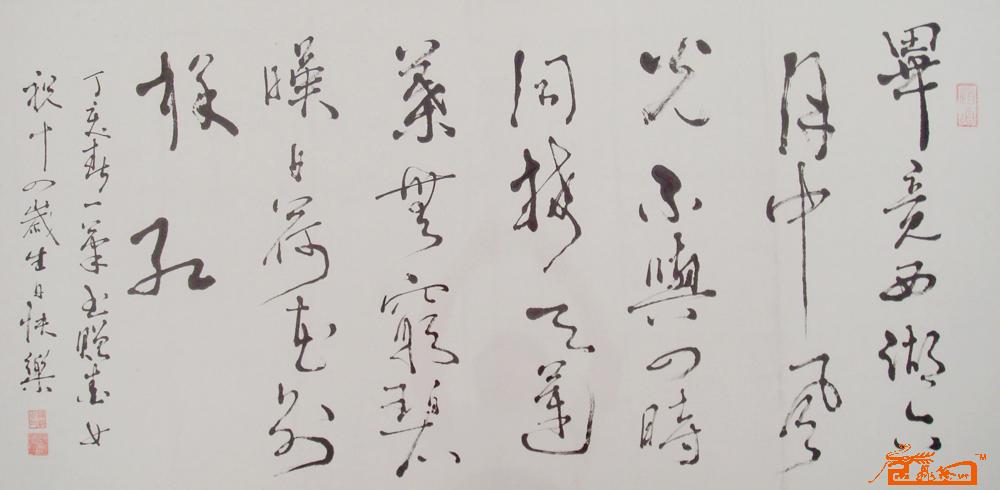 畢竟西湖六
月中風
光不與四時
同接天蓮
葉無窮碧
暎日荷花別
樣紅
丁亥春一書贈女
祝十四歲生日快樂